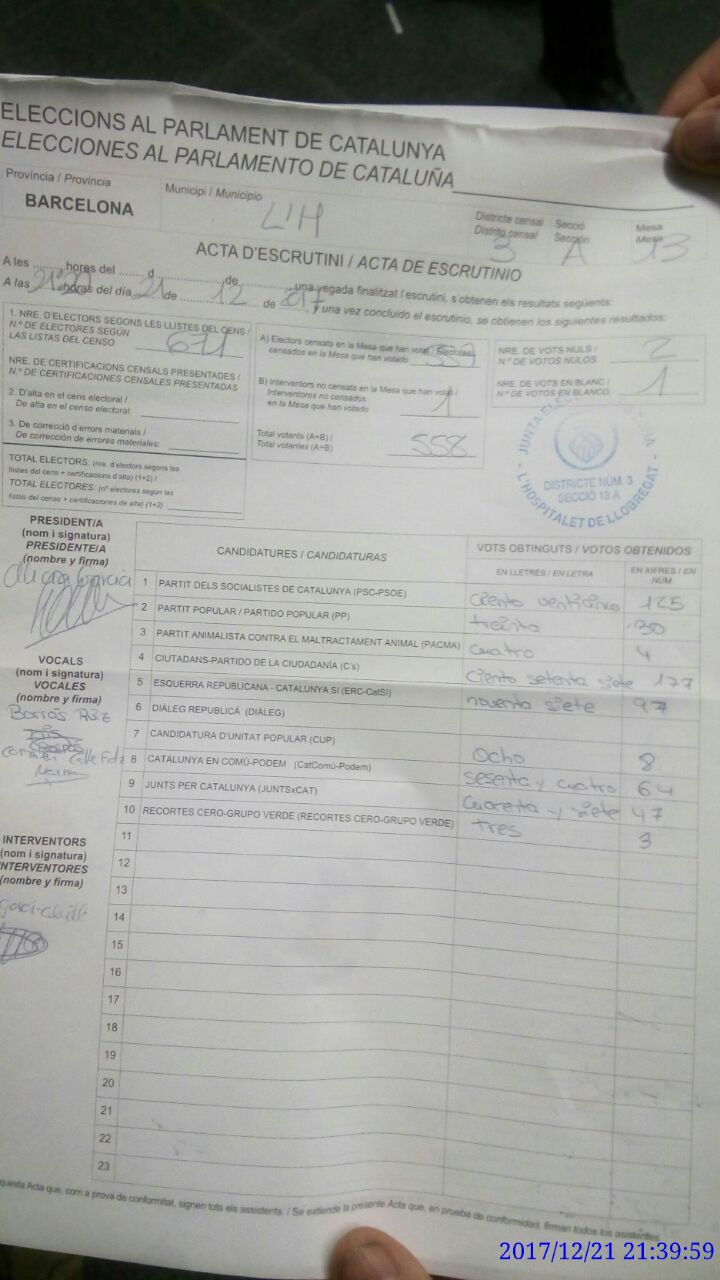 ELECCIONS AL PARLAMENT DE CATALUNYA
ELECCIONES AL PARLAMENTO DE CATALUÑA
Província / Provincia
BARCELONA
Municipi / Municipio
L'H
Districte censal
Distrito censal
3
Secció
Sección
A
Mesa
Mesa
13
ACTA D'ESCRUTINI / ACTA DE ESCRUTINIO
A les ........ hores del ........ d ........ de ........ una vegada finalitzat l'escrutini, s'obtenen els resultats següents:
A las horas del día 21 de 12 de 2017, y una vez concluido el escrutinio, se obtienen los siguientes resultados:
1. NRE. D'ELECTORS SEGONS LES LLISTES DEL CENS /
N.º DE ELECTORES SEGÚN
LAS LISTAS DEL CENSO 671
NRE. DE CERTIFICACIONS CENSALS PRESENTADES /
N.º DE CERTIFICACIONES CENSALES PRESENTADAS
2. D'alta en el cens electoral /
De alta en el censo electoral:
3. De correcció d'errors materials /
De corrección de errores materiales:
TOTAL ELECTORS: (nre. d'electors segons les
llistes del cens + certificacions d'alta) (1+2) /
TOTAL ELECTORES: (nº electores según las
listas del censo + certificaciones de alta) (1+2)
A) Electors censats en la Mesa que han votat / Electores
censados en la Mesa que han votado
B) Interventors no censats en la Mesa que han votat /
Interventores no censados
en la Mesa que han votado 1
Total votants (A+B) /
Total votantes (A+B) 558
NRE. DE VOTS NULS /
N.º DE VOTOS NULOS 2
NRE. DE VOTS EN BLANC /
N.º DE VOTOS EN BLANCO 1
DISTRICTE NÚM. 3
SECCIÓ 13 A
L'HOSPITALET DE LLOBREGAT
PRESIDENT/A
(nom i signatura)
PRESIDENTE/A
(nombre y firma)
VOCALS
(nom i signatura)
VOCALES
(nombre y firma)
INTERVENTORS
(nom i signatura)
INTERVENTORES
(nombre y firma)
CANDIDATURES / CANDIDATURAS
VOTS OBTINGUTS / VOTOS OBTENIDOS
EN LLETRES / EN LETRA
EN XIFRES / EN NÚM.
1 PARTIT DELS SOCIALISTES DE CATALUNYA (PSC-PSOE) 125
2 PARTIT POPULAR / PARTIDO POPULAR (PP) treinta 30
3 PARTIT ANIMALISTA CONTRA EL MALTRACTAMENT ANIMAL (PACMA) cuatro 4
4 CIUTADANS-PARTIDO DE LA CIUDADANÍA (C's) ciento setenta siete 177
5 ESQUERRA REPUBLICANA - CATALUNYA SÍ (ERC-CatSí) noventa siete 97
6 DIÀLEG REPUBLICÀ (DIÀLEG)
7 CANDIDATURA D'UNITAT POPULAR (CUP) Ocho 8
8 CATALUNYA EN COMÚ-PODEM (CatComú-Podem) sesenta y cuatro 64
9 JUNTS PER CATALUNYA (JUNTSxCAT) cuarenta y siete 47
10 RECORTES CERO-GRUPO VERDE (RECORTES CERO-GRUPO VERDE) Tres 3
11
12
13
14
15
16
17
18
19
20
21
22
23
questa Acta que, com a prova de conformitat, signen tots els assistents. / Se extiende la presente Acta que, en prueba de conformidad, firman todos los asistentes.
2017/12/21 21:39:59